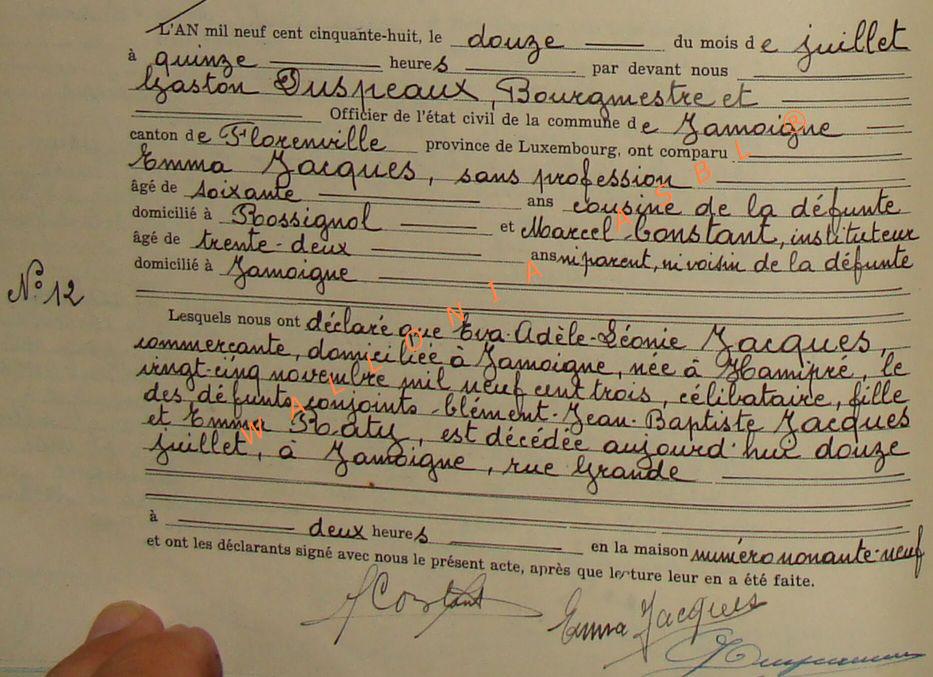 L'AN mil neuf cent cinquante-huit, le douze du mois de juillet
à quinze heures par devant nous
Gaston Duspeaux, Bourgmestre et
Officier de l'état civil de la commune de Jamoigne
canton de Florenville province de Luxembourg, ont comparu
Emma Jacques, sans profession
âgé de soixante ans cousine de la défunte
domicilié à Rossignol et Marcel Constant, instituteur
âgé de trente-deux ans ni parent, ni voisin de la défunte
domicilié à Jamoigne
N° 12
Lesquels nous ont déclaré que Eva-Adèle-Léonie Jacques,
commerçante, domiciliée à Jamoigne, née à Hamipré, le
vingt-cinq novembre mil neuf cent trois, célibataire, fille
des défunts conjoints Clément-Jean-Baptiste Jacques
et Emma Raty, est décédée aujourd'hui douze
juillet, à Jamoigne, rue Grande
à deux heures en la maison numéro nonante-neuf
et ont les déclarants signé avec nous le présent acte, après que lecture leur en a été faite.
Constant
Emma Jacques
WALLONIA ASBL ®